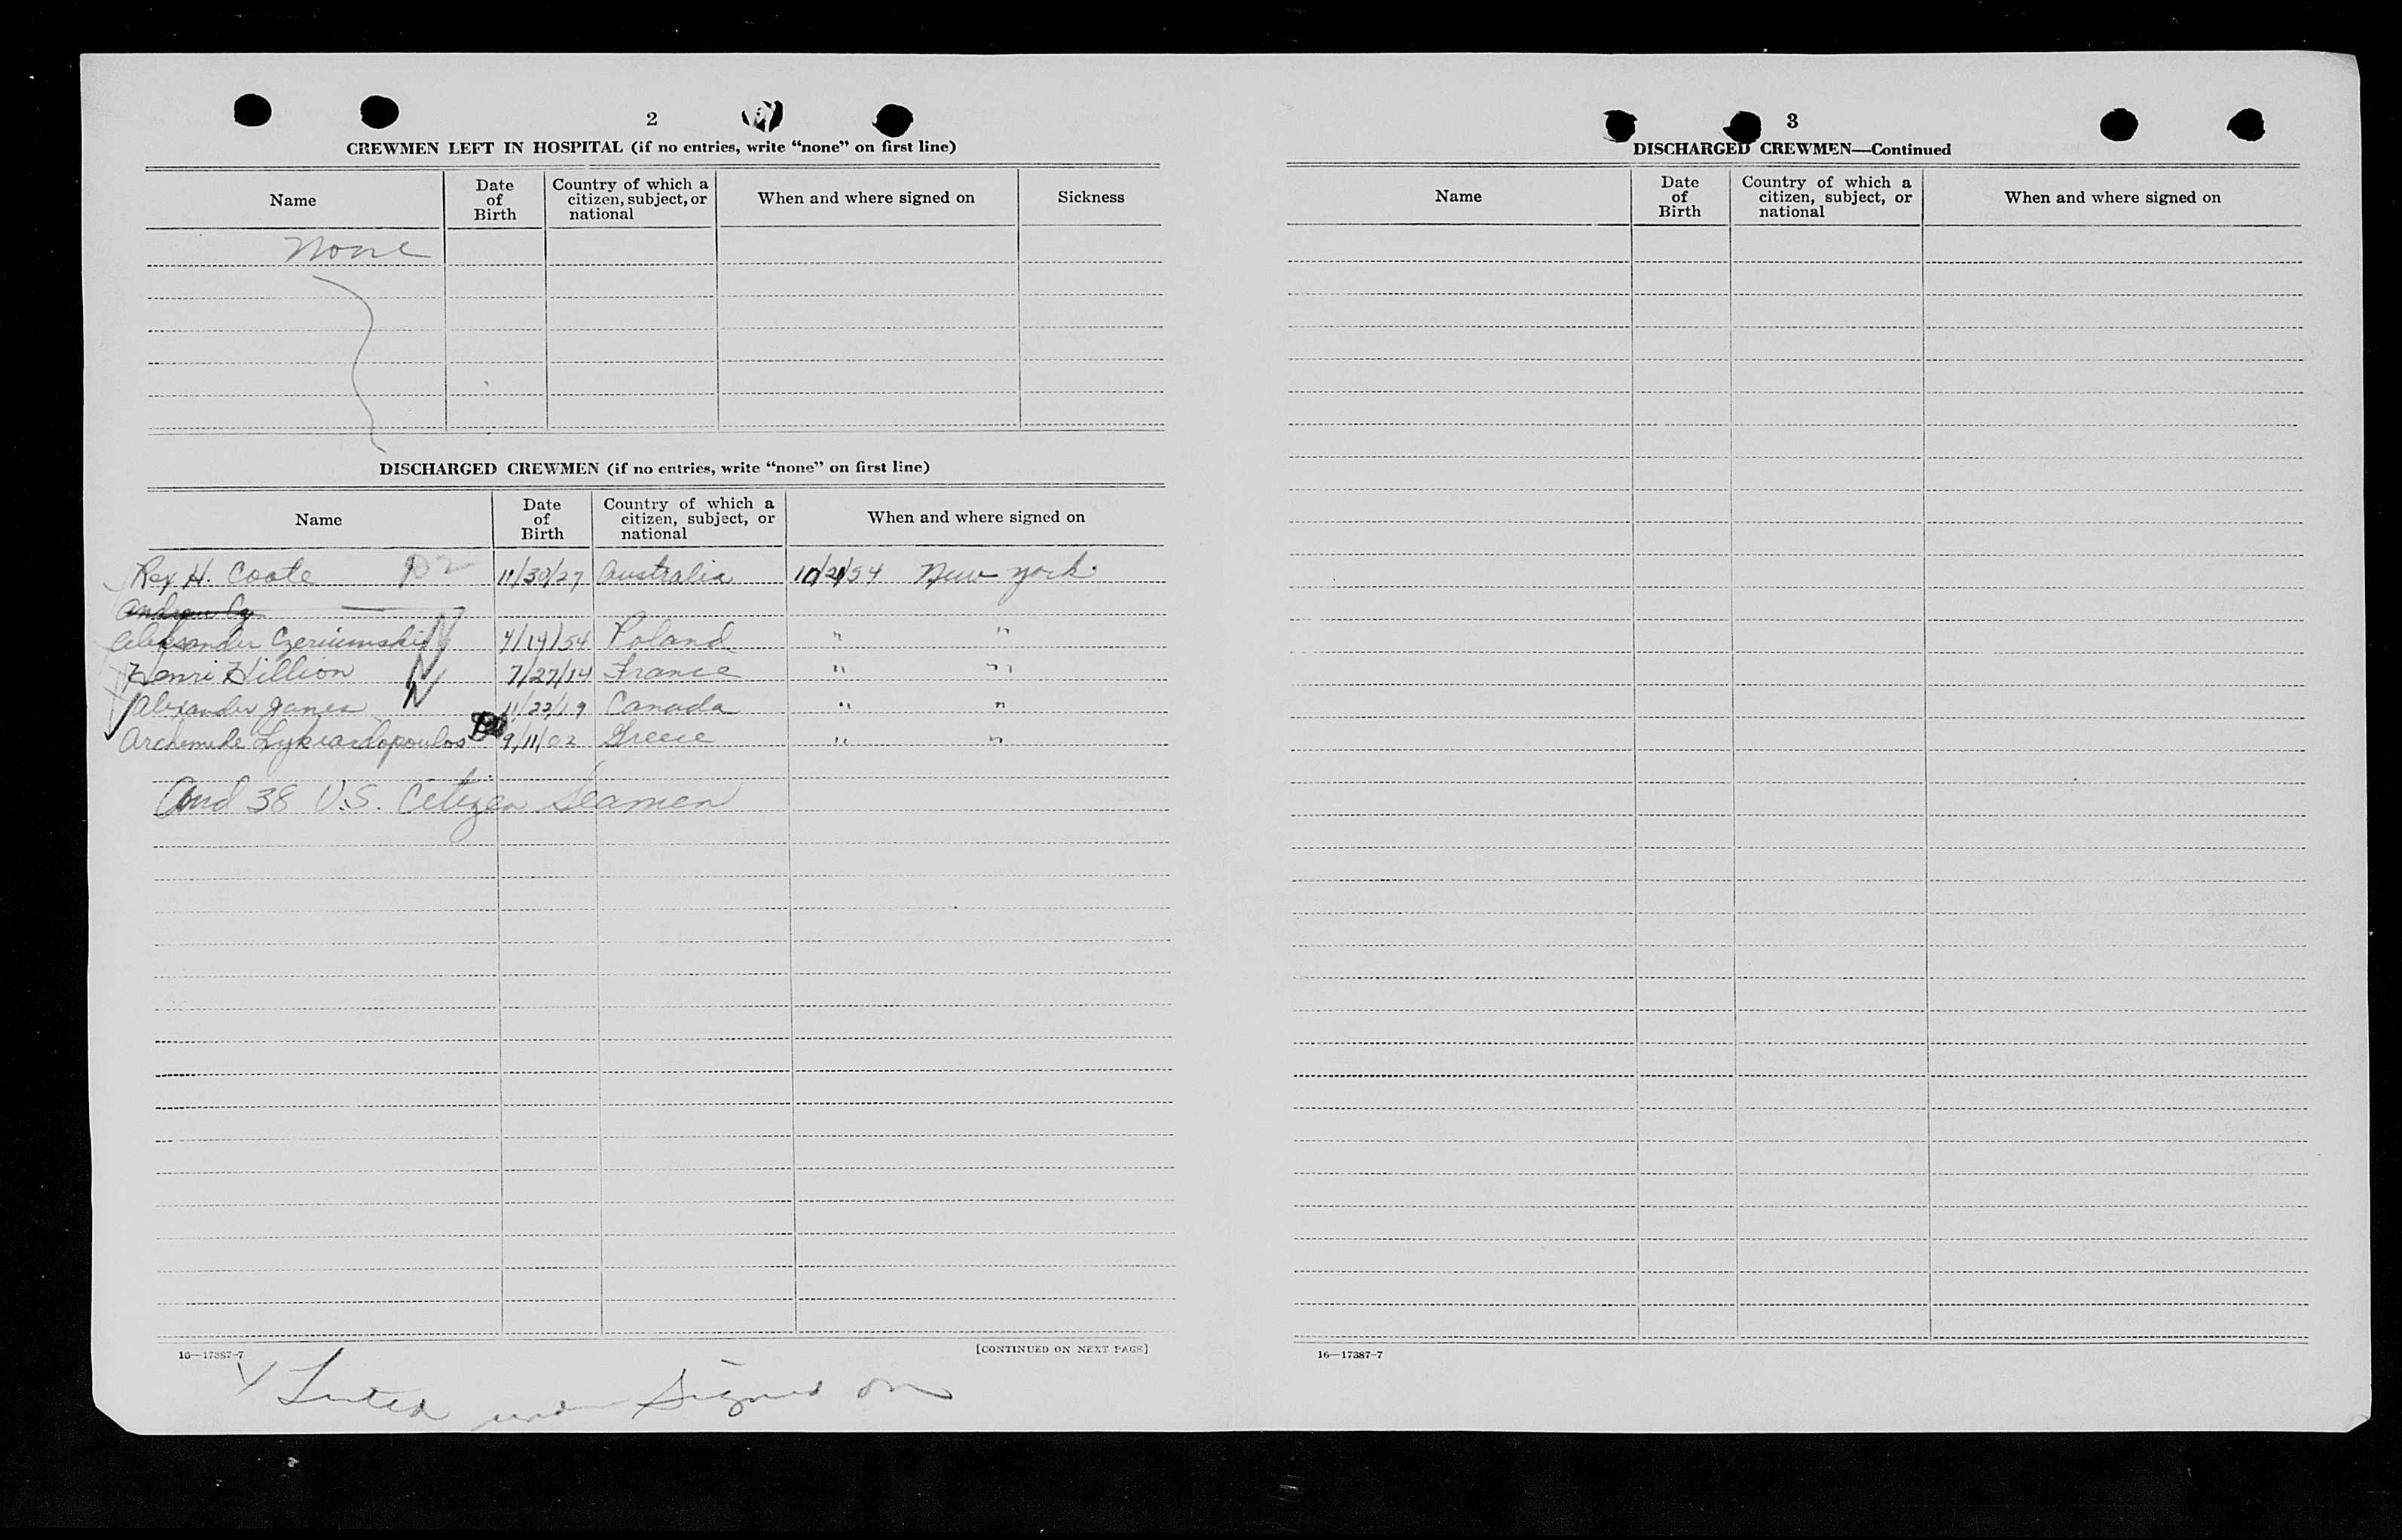 2
CREWMEN LEFT IN HOSPITAL (if no entries, write “none” on first line)
Name
Date of Birth
Country of which a citizen, subject, or national
When and where signed on
Sickness
None
DISCHARGED CREWMEN (if no entries, write “none” on first line)
Name
Date of Birth
Country of which a citizen, subject, or national
When and where signed on
Rex H. Coote D2 11/30/27 Australia 10/21/54 New York
Andrew Cz
Aleksander Czeriumski N 4/14/54 Poland " "
Henri Hillion N 7/27/14 France " "
Alexander Janes N 11/22/19 Canada " "
Archemede Lykiardopoulos 9/11/02 Greece " "
And 38 U.S. Citizen Seamen
16—17387-7
[CONTINUED ON NEXT PAGE]
Listed under Signed on
3
DISCHARGED CREWMEN—Continued
Name
Date of Birth
Country of which a citizen, subject, or national
When and where signed on
16—17387-7